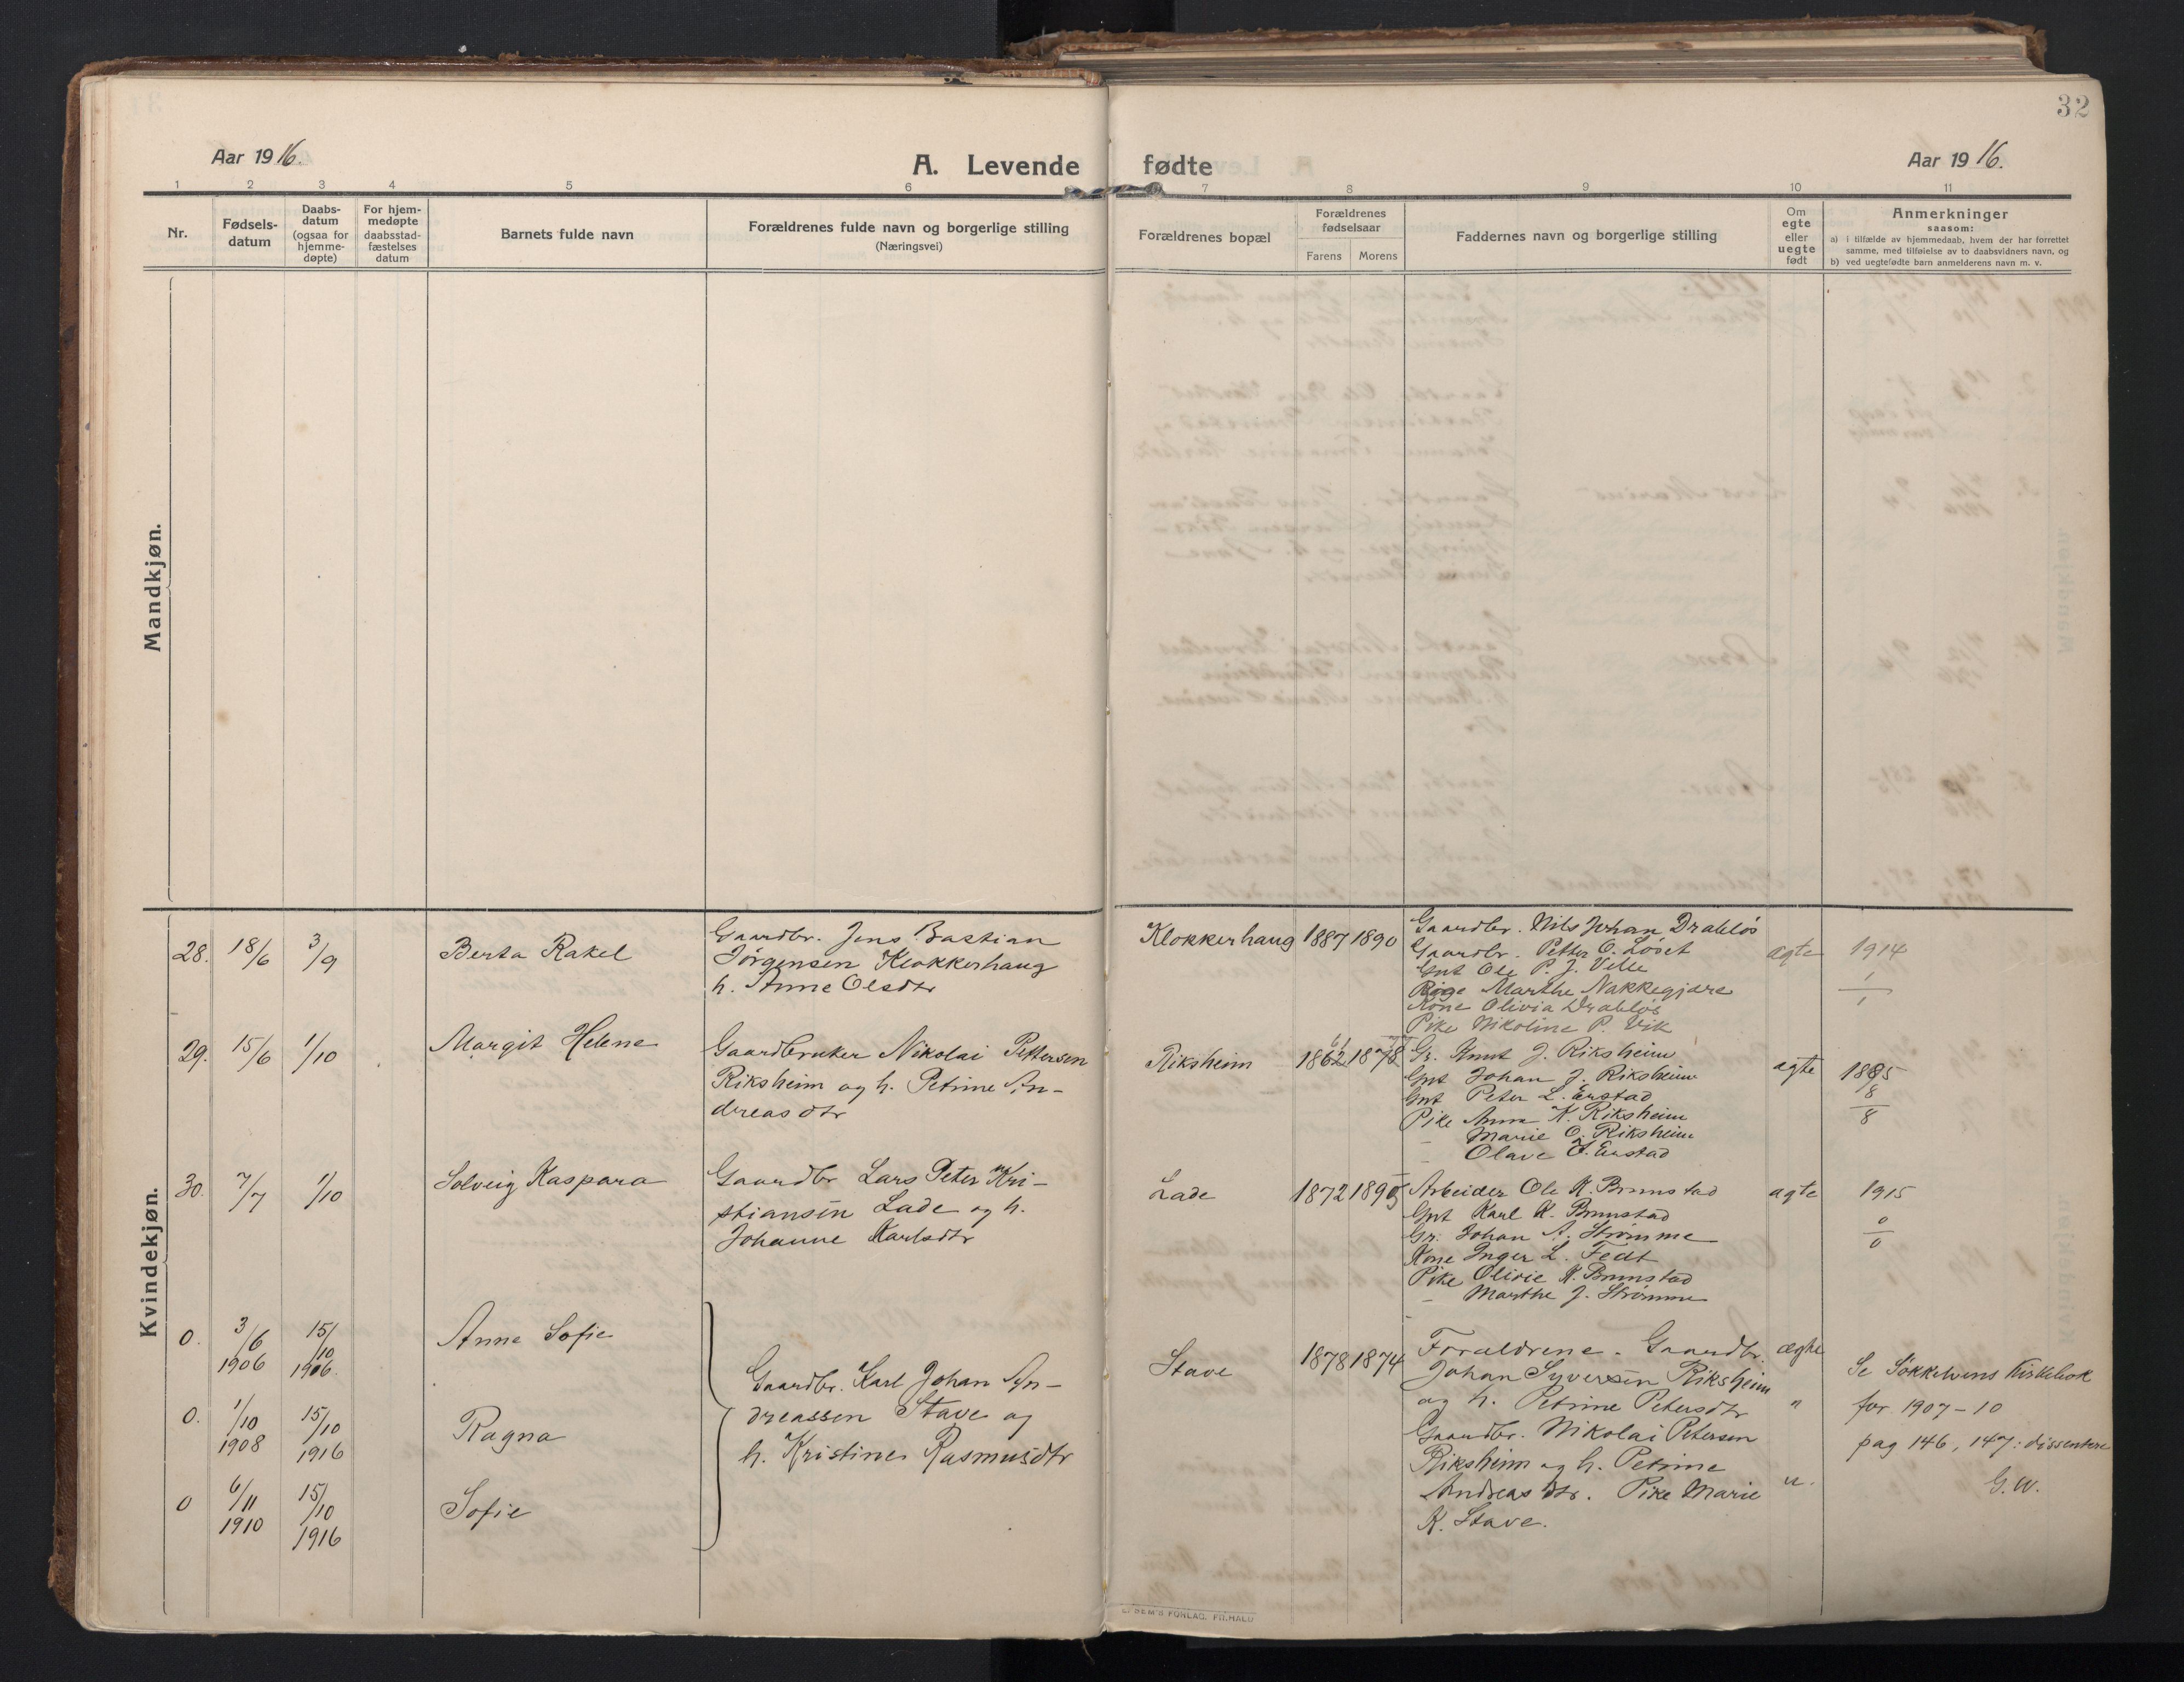 32
Aar 1916.
A. Levende fødte
Aar 1916.
1 2 3 4 5 6 7 8 9 10 11
Nr.
Fødsels-
datum
Daabs-
datum
(ogsaa for
hjemme-
døpte)
For hjem-
medøpte
daabsstad-
fæstelses
datum
Barnets fulde navn
Forældrenes fulde navn og borgerlige stilling
(Næringsvei)
Forældrenes bopæl
Forældrenes
fødselsaar
Farens Morens
Faddernes navn og borgerlige stilling
Om
egte
eller
uegte
født
Anmerkninger
saasom:
a) i tilfælde av hjemmedaab, hvem der har forrettet
samme, med tilføielse av to daabsvidners navn, og
b) ved uegtefødte barn anmelderens navn m. v.
Mandkjøn.
Kvindekjøn.
28. 18/6 3/9 Berta Rakel
Gaardbr. Jens Bastian
Jørgensen Klokkerhaug
h. Anne Olsdtr
Klokkerhaug 1887 1890
Gaardbr. Nils Johan Drabløs
Gaardbr. Petter O. Løset
Gut Ole P. J. Velle
Pige Marthe Nakkegjære
Kone Olivia Drabløs
Pike Nikoline P. Vik
ægte
1914
1
1
29. 15/6 1/10 Margit Helene
Gaardbruker Nikolai Pettersen
Riksheim og h. Petrine An-
dreasdtr
Riksheim 1862 1878
61
Gr. Knut J. Riksheim
Gut Johan J. Riksheim
Gut Peter L. Erstad
Pike Anna K. Riksheim
— Marie O. Riksheim
— Olave J. Erstad
ægte
1885
8
8
30. 7/7 1/10 Solveig Kaspara
Gaardbr Lars Peter Kri-
stiansen Lade og h.
Johanne Karlsdtr
Lade 1872 1895
Arbeider Ole K. Brunstad
Gut Karl K. Brunstad
Gr. Johan A. Strømme
Kone Inger L. Fedt
Pike Olivie K. Brunstad
— Marthe J. Strømme
ægte
1915
0
0
0. 3/6 1906 15/10 1906. Anne Sofie
0. 1/10 1908 15/10 1916 Ragna
0 6/11 1910 15/10 1916 Sofie
Gaardbr. Karl Johan An-
dreassen Stave og
h. Kristine Rasmusdtr
Stave 1878 1874
Forældrene. Gaardbr.
Johan Syversen Riksheim
og h. Petrine Petersdtr
Gaardbr. Nikolai Petersen
Riksheim og h. Petrine
Andreasdtr. Pike Marie
K. Stave.
ægte
"
u.
Se Søkkelvens Kirkebok
for 1907-10
pag 146, 147: dissentere
G.W.
SEM'S FORLAG, FR.HALD